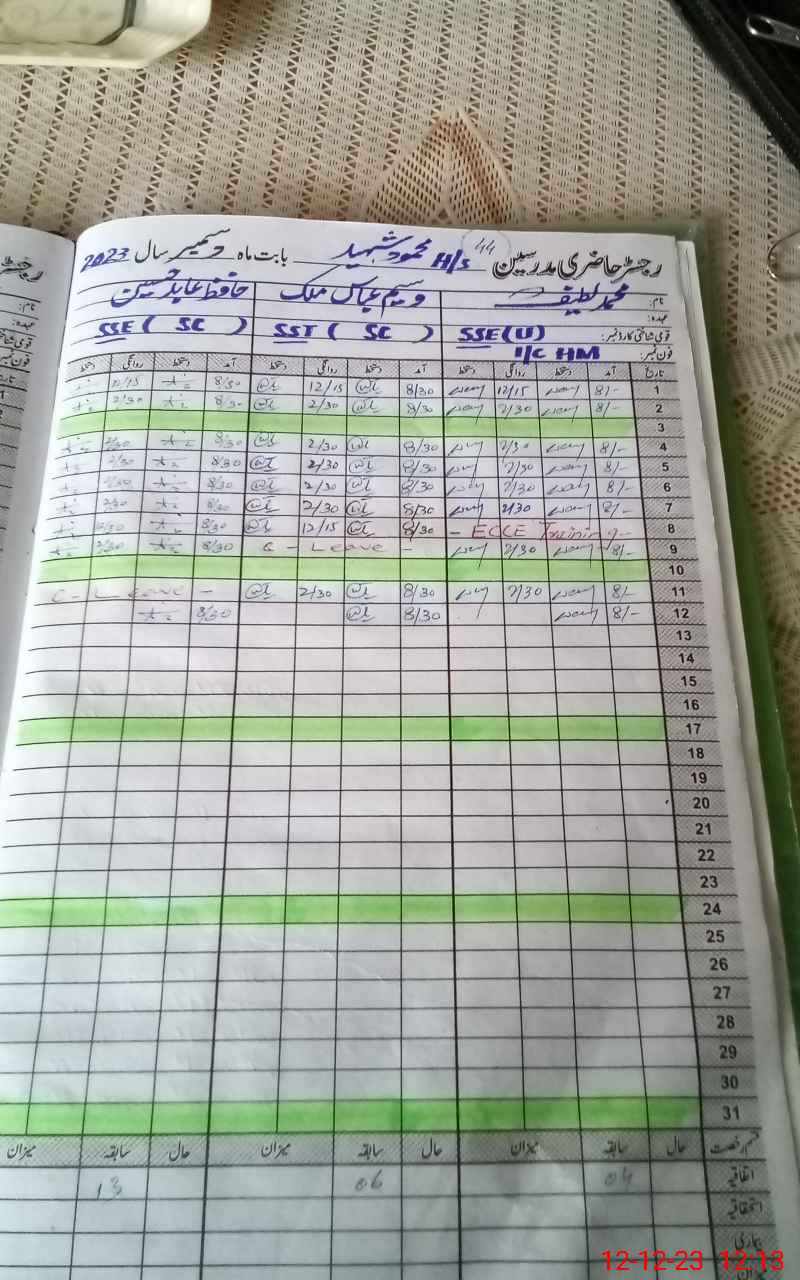 رجسٹر حاضری مدرسین 44 H/s محمود شہید بابت ماہ دسمبر سال 2023
نام: محمد لطیف وسیم عباس ملک حافظ عابد حسین
عہدہ:
قومی شناختی کارڈ نمبر: SSE (U) SST ( SC ) SSE ( SC )
فون نمبر: I/C HM
تاریخ آمد دستخط روانگی دستخط آمد دستخط روانگی دستخط آمد دستخط روانگی دستخط
1 8/- 12/15 8/30 12/15 8/30 12/15
2 8/- 2/30 8/30 2/30 8/30 2/30
3
4 8/- 2/30 8/30 2/30 8/30 2/30
5 8/- 2/30 8/30 2/30 8/30 2/30
6 8/- 2/30 8/30 2/30 8/30 2/30
7 8/- 2/30 8/30 2/30 8/30 2/30
8 - ECCE Training - 8/30 12/15 8/30
9 8/- 2/30 C - Leave - 8/30 2/30
10
11 8/- 2/30 8/30 2/30 C - Leave -
12 8/- 8/30 8/30
13
14
15
16
17
18
19
20
21
22
23
24
25
26
27
28
29
30
31
قسم رخصت حال سابقہ میزان حال سابقہ میزان حال سابقہ میزان
اتفاقیہ 04 06 13
استحقاقیہ
بیماری
12-12-23 12:13